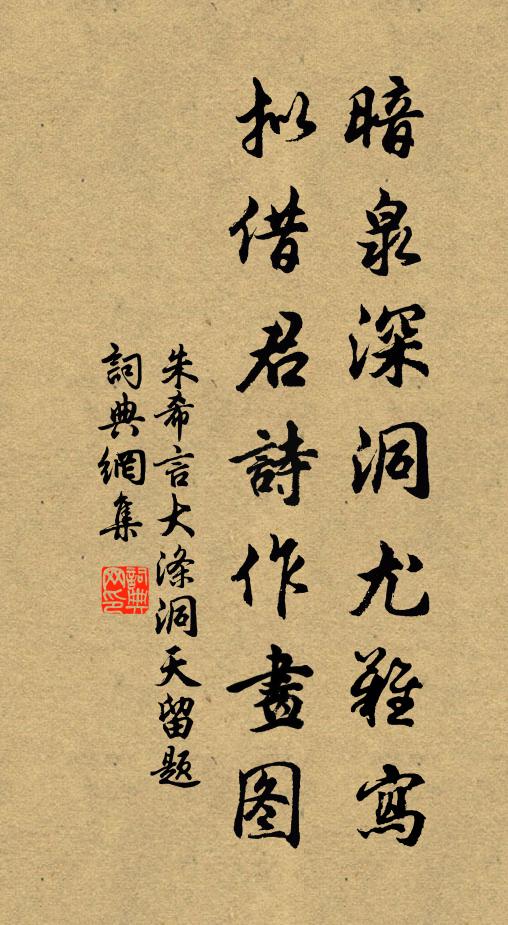 暗泉深洞尤難寫
拟借君詩作畫图
朱希言大滌洞天留题
詞典網集
詞典网印